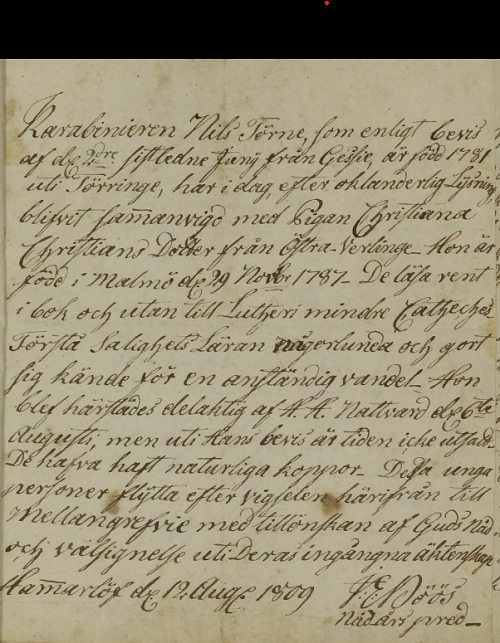 Karabinieren Nils Törne, som enligt bevis
af d. 2dre sistledne Juny från Gessie, är född 1781
uti Törringe, har i dag, efter oklanderlig Lysning
blifvit sammanvigd med Pigan Christiana
Christians Dotter från Östra Verlinge. Hon är
född i Malmö d. 29 Novbr 1787. De läsa rent
i bok och utan till Lutheri mindre Cateches
Förstå Salighets Läran någorlunda och gort
sig kände för en anständig vandel. Hon
blef härstädes delaktig af H. H. Nattvard d. 6te
Augusti, men uti Hans bevis är tiden icke utsadt.
De hafva haft naturliga koppor. Dessa unga
personer flytta efter vigselen härifrån till
Mellangrefvie med tillönskan af Guds Nåd
och välsignelse uti Deras ingångna äktenskap
Hamarlöf d. 12 Aug. 1809
Nådårs pred.